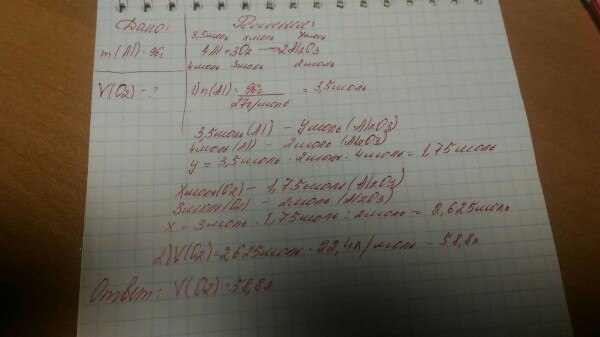 Дано:
m(Al)=96г
V(O2)-?
Решение:
3,5моль xмоль yмоль
4Al+3O2 → 2Al2O3
4моль 3моль 2моль
1)n(Al)= 96г / 27г/моль = 3,5моль
3,5моль(Al) - yмоль(Al2O3)
4моль(Al) - 2моль(Al2O3)
y = 3,5моль · 2моль : 4моль = 1,75моль
Xмоль(O2) - 1,75моль(Al2O3)
3моль(O2) - 2моль(Al2O3)
x = 3моль · 1,75моль : 2моль = 2,625моль
2)V(O2)=2,625моль · 22,4л/моль = 58,8л
Ответ: V(O2)=58,8л